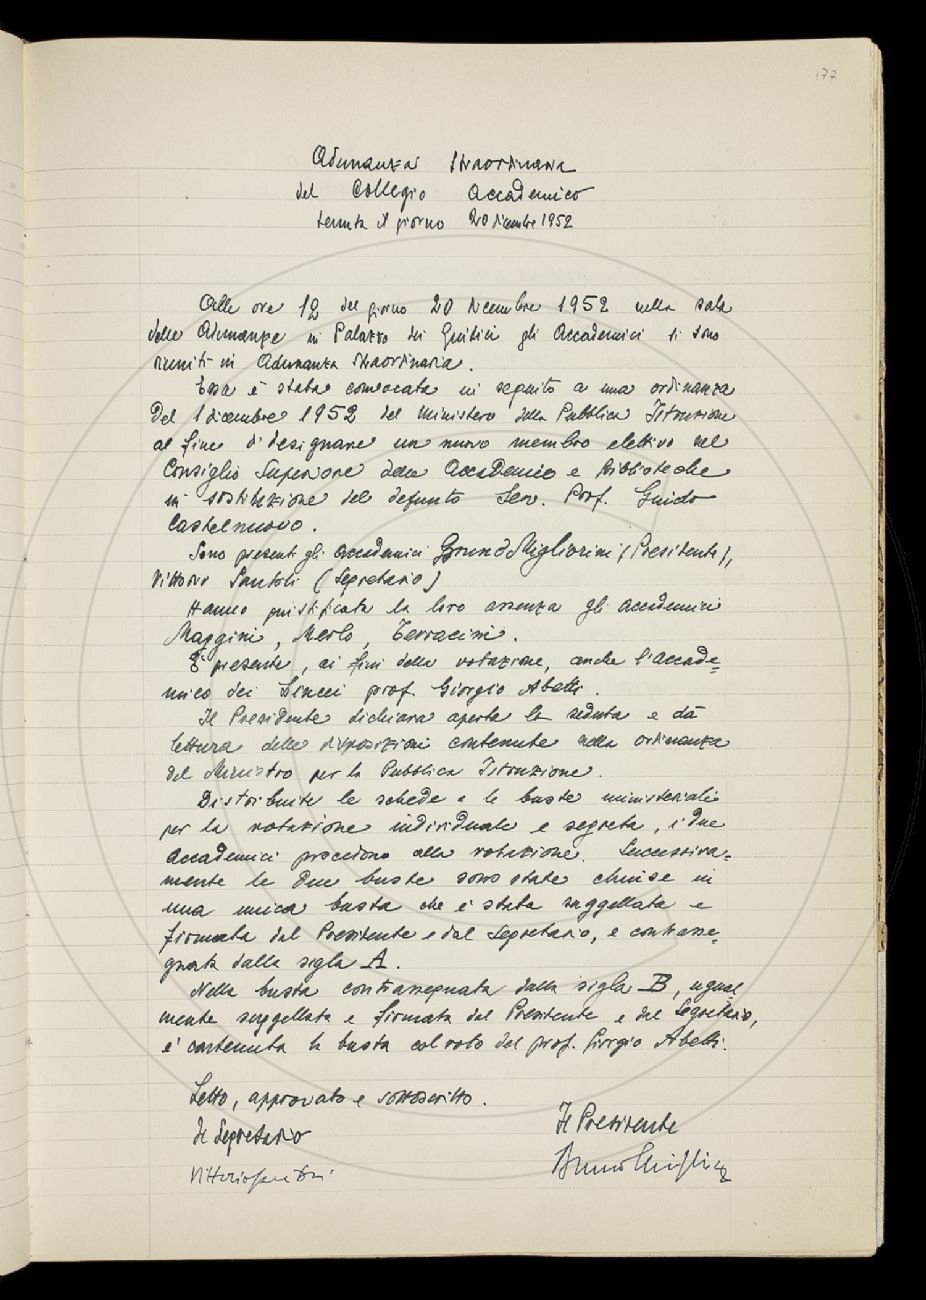 177
Adunanza straordinaria
del Collegio Accademico
tenuta il giorno 20 dicembre 1952
Alle ore 12 del giorno 20 dicembre 1952 nella sala
delle Adunanze in Palazzo dei Giudici gli Accademici si sono
riuniti in Adunanza straordinaria.
Essa è stata convocata in seguito a una ordinanza
del 1 dicembre 1952 del Ministero della Pubblica Istruzione
al fine di designare un nuovo membro elettivo nel
Consiglio Superiore delle Accademie e Biblioteche
in sostituzione del defunto Sen. Prof. Guido
Castelnuovo.
Sono presenti gli accademici Bruno Migliorini (Presidente),
Vittorio Santoli (Segretario)
Hanno giustificata la loro assenza gli accademici
Maggini, Merlo, Terracini.
È presente, ai fini della votazione, anche l'accade=
mico dei Lincei prof. Giorgio Abetti.
Il Presidente dichiara aperta la seduta e dà
lettura delle disposizioni contenute nella ordinanza
del Ministro per la Pubblica Istruzione.
Distribuite le schede e le buste ministeriali
per la votazione individuale e segreta, i due
accademici procedono alla votazione. Successiva=
mente le due buste sono state chiuse in
una unica busta che è stata suggellata e
firmata dal Presidente e dal Segretario, e contrasse=
gnata dalla sigla A.
Nella busta contrassegnata dalla sigla B, ugual=
mente suggellata e firmata dal Presidente e dal Segretario,
è contenuta la busta col voto del prof. Giorgio Abetti.
Letto, approvato e sottoscritto.
Il Segretario
Il Presidente
Vittorio Santoli
Bruno Migliorini